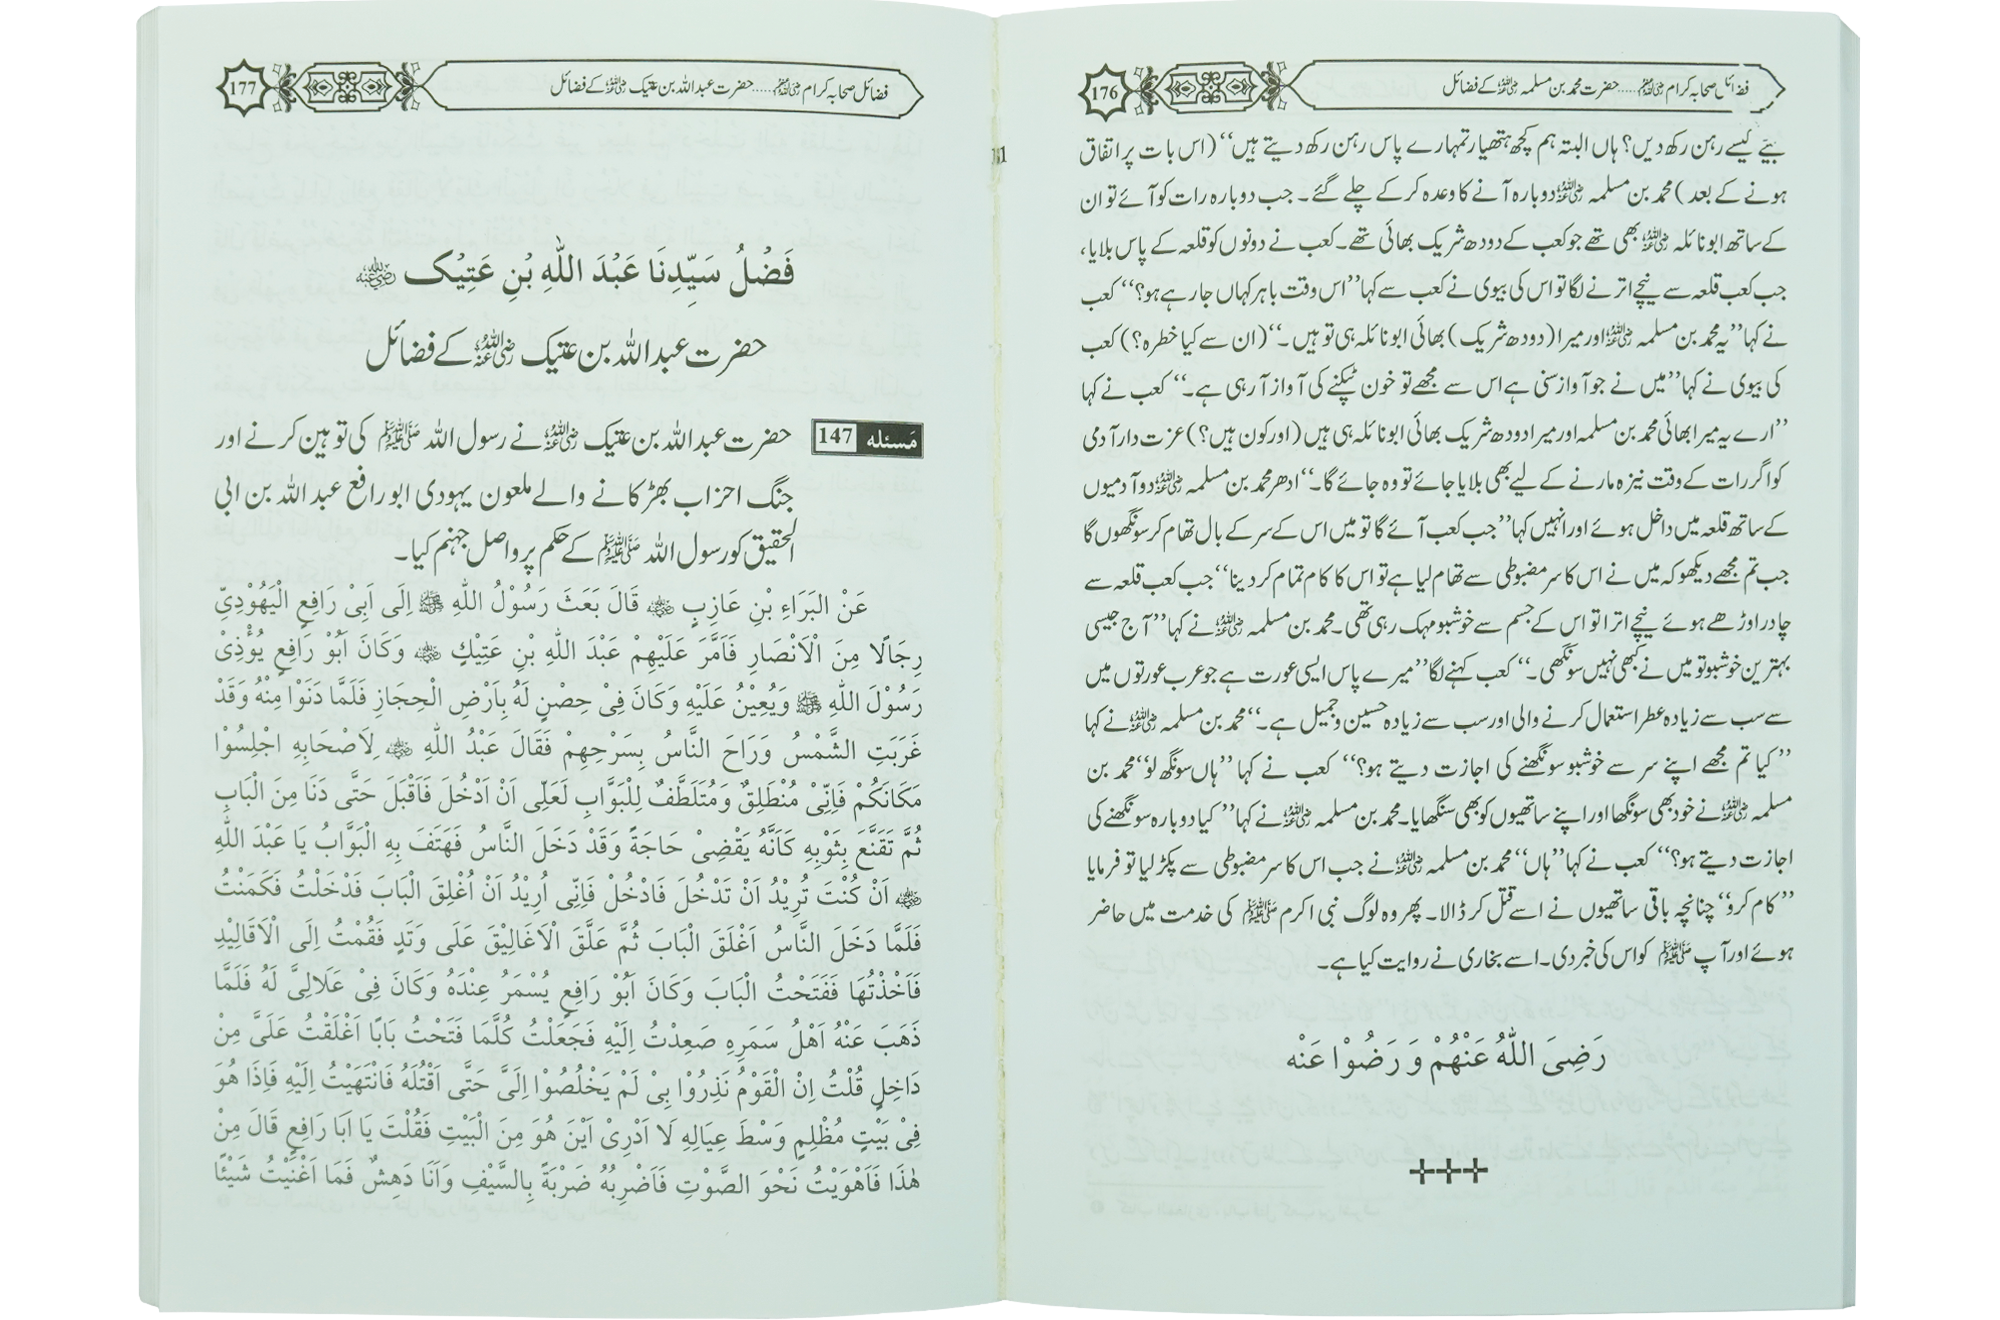 فضائل صحابہ کرام رضی اللہ عنہم ..... حضرت محمد بن مسلمہ رضی اللہ عنہ کے فضائل
176
بیٹے کیسے رہن رکھ دیں؟ ہاں البتہ ہم کچھ ہتھیار تمہارے پاس رہن رکھ دیتے ہیں‘‘ (اس بات پر اتفاق
ہونے کے بعد) محمد بن مسلمہ رضی اللہ عنہ دوبارہ آنے کا وعدہ کر کے چلے گئے۔ جب دوبارہ رات کو آئے تو ان
کے ساتھ ابو نائلہ رضی اللہ عنہ بھی تھے جو کعب کے دودھ شریک بھائی تھے۔ کعب نے دونوں کو قلعہ کے پاس بلایا،
جب کعب قلعہ سے نیچے اترنے لگا تو اس کی بیوی نے کعب سے کہا ’’اس وقت باہر کہاں جا رہے ہو؟‘‘ کعب
نے کہا ’’یہ محمد بن مسلمہ رضی اللہ عنہ اور میرا (دودھ شریک) بھائی ابو نائلہ ہی تو ہیں۔‘‘ (ان سے کیا خطرہ؟) کعب
کی بیوی نے کہا ’’میں نے جو آواز سنی ہے اس سے مجھے تو خون ٹپکنے کی آواز آ رہی ہے۔‘‘ کعب نے کہا
’’ارے یہ میرا بھائی محمد بن مسلمہ اور میرا دودھ شریک بھائی ابو نائلہ ہی ہیں (اور کون ہیں؟) عزت دار آدمی
کو اگر رات کے وقت نیزہ مارنے کے لیے بھی بلایا جائے تو وہ جائے گا۔‘‘ ادھر محمد بن مسلمہ رضی اللہ عنہ دو آدمیوں
کے ساتھ قلعہ میں داخل ہوئے اور انہیں کہا ’’جب کعب آئے گا تو میں اس کے سر کے بال تھام کر سونگھوں گا
جب تم مجھے دیکھو کہ میں نے اس کا سر مضبوطی سے تھام لیا ہے تو اس کا کام تمام کر دینا‘‘ جب کعب قلعہ سے
چادر اوڑھے ہوئے نیچے اترا تو اس کے جسم سے خوشبو مہک رہی تھی۔ محمد بن مسلمہ رضی اللہ عنہ نے کہا ’’آج جیسی
بہترین خوشبو تو میں نے کبھی نہیں سونگھی۔‘‘ کعب کہنے لگا ’’میرے پاس ایسی عورت ہے جو عرب عورتوں میں
سے سب سے زیادہ عطر استعمال کرنے والی اور سب سے زیادہ حسین و جمیل ہے۔‘‘ محمد بن مسلمہ رضی اللہ عنہ نے کہا
’’کیا تم مجھے اپنے سر سے خوشبو سونگھنے کی اجازت دیتے ہو؟‘‘ کعب نے کہا ’’ہاں سونگھ لو‘‘ محمد بن
مسلمہ رضی اللہ عنہ نے خود بھی سونگھا اور اپنے ساتھیوں کو بھی سنگھایا۔ محمد بن مسلمہ رضی اللہ عنہ نے کہا ’’کیا دوبارہ سونگھنے کی
اجازت دیتے ہو؟‘‘ کعب نے کہا ’’ہاں‘‘ محمد بن مسلمہ رضی اللہ عنہ نے جب اس کا سر مضبوطی سے پکڑ لیا تو فرمایا
’’کام کرو‘‘ چنانچہ باقی ساتھیوں نے اسے قتل کر ڈالا۔ پھر وہ لوگ نبی اکرم ﷺ کی خدمت میں حاضر
ہوئے اور آپ ﷺ کو اس کی خبر دی۔ اسے بخاری نے روایت کیا ہے۔
رَضِیَ اللّٰہُ عَنْهُمْ وَ رَضُوْا عَنْه
فضائل صحابہ کرام رضی اللہ عنہم ..... حضرت عبداللہ بن عتیک رضی اللہ عنہ کے فضائل
177
فَضْلُ سَيِّدِنَا عَبْدَ اللّٰهِ بْنِ عَتِيْک رضی اللہ عنہ
حضرت عبداللہ بن عتیک رضی اللہ عنہ کے فضائل
مَسئله 147 حضرت عبداللہ بن عتیک رضی اللہ عنہ نے رسول اللہ ﷺ کی توہین کرنے اور
جنگ احزاب بھڑکانے والے ملعون یہودی ابو رافع عبداللہ بن ابی
الحقیق کو رسول اللہ ﷺ کے حکم پر واصل جہنم کیا۔
عَنْ الْبَرَاءِ بْنِ عَازِبٍ رضی اللہ عنہ قَالَ بَعَثَ رَسُوْلُ اللّٰهِ ﷺ اِلَى اَبِىْ رَافِعٍ الْيَهُوْدِىِّ
رِجَالًا مِنَ الْاَنْصَارِ فَاَمَّرَ عَلَيْهِمْ عَبْدَ اللّٰهِ بْنِ عَتِيْكٍ رضی اللہ عنہ وَكَانَ اَبُوْ رَافِعٍ يُوْذِىْ
رَسُوْلَ اللّٰهِ ﷺ وَيُعِيْنُ عَلَيْهِ وَكَانَ فِىْ حِصْنٍ لَهُ بِاَرْضِ الْحِجَازِ فَلَمَّا دَنَوْا مِنْهُ وَقَدْ
غَرَبَتِ الشَّمْسُ وَرَاحَ النَّاسُ بِسَرْحِهِمْ فَقَالَ عَبْدُ اللّٰهِ رضی اللہ عنہ لِاَصْحَابِهِ اجْلِسُوْا
مَكَانَكُمْ فَاِنِّىْ مُنْطَلِقٌ وَمُتَلَطِّفٌ لِلْبَوَّابِ لَعَلِّى اَنْ اَدْخُلَ فَاَقْبَلَ حَتَّى دَنَا مِنَ الْبَابِ
ثُمَّ تَقَنَّعَ بِثَوْبِهِ كَاَنَّهُ يَقْضِىْ حَاجَةً وَقَدْ دَخَلَ النَّاسُ فَهَتَفَ بِهِ الْبَوَّابُ يَا عَبْدَ اللّٰهِ
رضی اللہ عنہ اَنْ كُنْتَ تُرِيْدُ اَنْ تَدْخُلَ فَادْخُلْ فَاِنِّى اُرِيْدُ اَنْ اُغْلِقَ الْبَابَ فَدْخَلْتُ فَكَمَنْتُ
فَلَمَّا دَخَلَ النَّاسُ اَغْلَقَ الْبَابَ ثُمَّ عَلَّقَ الْاَغَالِيْقَ عَلَى وَتَدٍ فَقُمْتُ اِلَى الْاَقَالِيْدِ
فَاَخَذْتُهَا فَفَتَحْتُ الْبَابَ وَكَانَ اَبُوْ رَافِعٍ يُسْمَرُ عِنْدَهُ وَكَانَ فِىْ عَلَالِىَّ لَهُ فَلَمَّا
ذَهَبَ عَنْهُ اَهْلُ سَمَرِهِ صَعِدْتُ اِلَيْهِ فَجَعَلْتُ كُلَّمَا فَتَحْتُ بَابًا اَغْلَقْتُ عَلَىَّ مِنْ
دَاخِلٍ قُلْتُ اِنْ الْقَوْمُ نَذِرُوْا بِىْ لَمْ يَخْلُصُوْا اِلَىَّ حَتَّى اَقْتُلَهُ فَانْتَهَيْتُ اِلَيْهِ فَاِذَا هُوَ
فِىْ بَيْتٍ مُظْلِمٍ وَسْطَ عِيَالِهِ لَا اَدْرِىْ اَيْنَ هُوَ مِنَ الْبَيْتِ فَقُلْتَ يَا اَبَا رَافِعٍ قَالَ مِنْ
هٰذَا فَاَهْوَيْتُ نَحْوَ الصَّوْتِ فَاَضْرِبُهُ ضَرْبَةً بِالسَّيْفِ وَاَنَا دَهِشٌ فَمَا اَغْنَيْتُ شَيْئًا